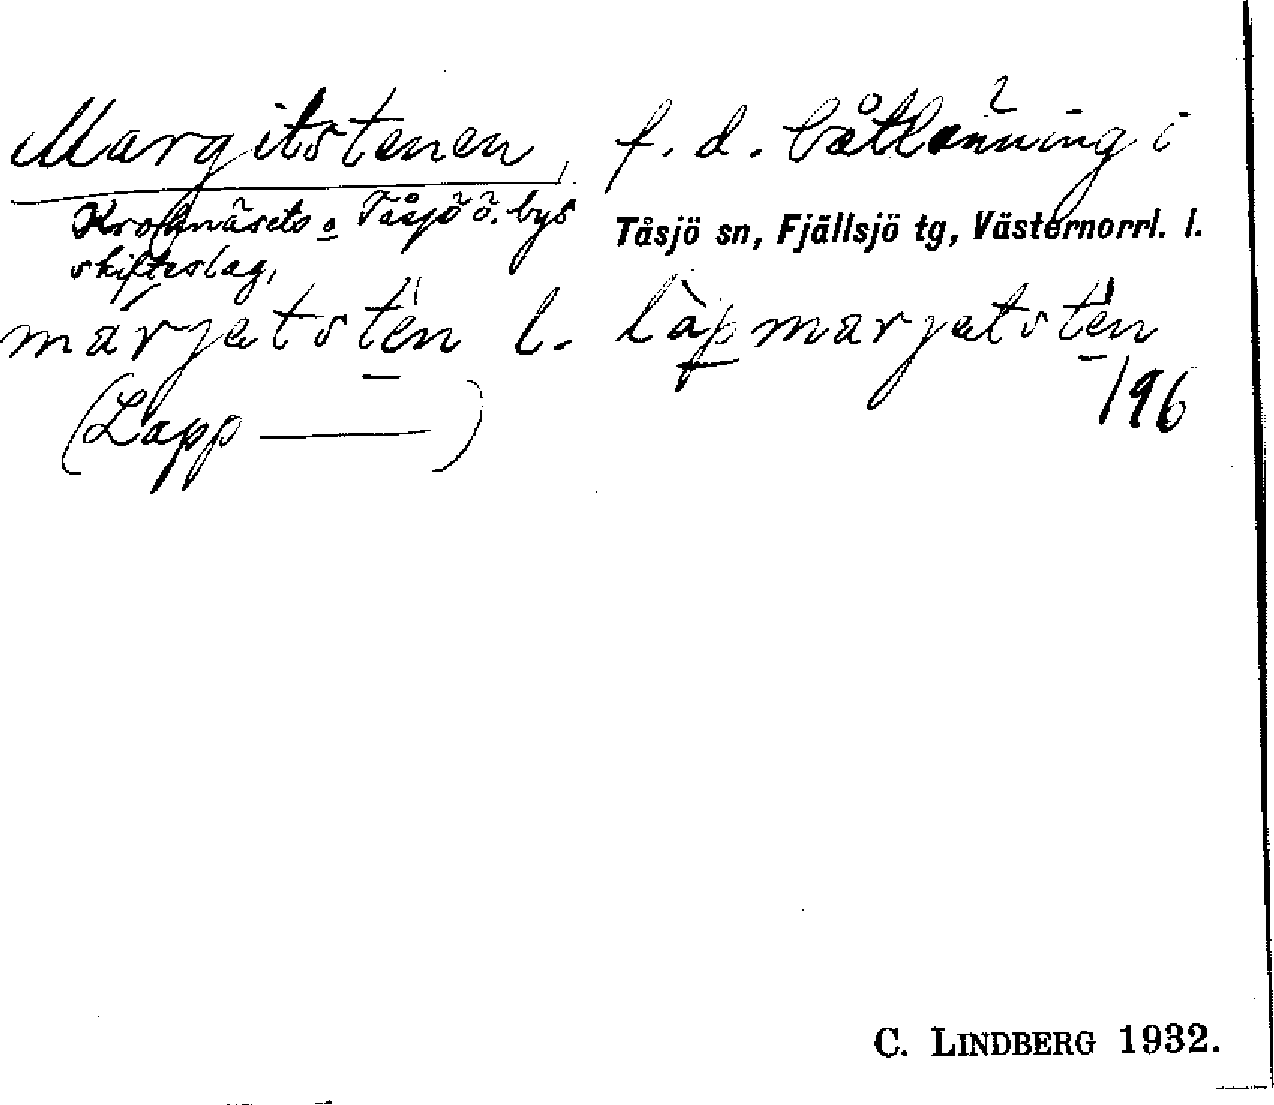 Margitstenen, f. d. båtlänning i
Kroknäsets o Tåsjö ö. bys
skifteslag,
Tåsjö sn, Fjällsjö tg, Västernorrl. l.
màrjatstén l. làpmarjatstén
(Lapp ——— )
196
C. LINDBERG 1932.